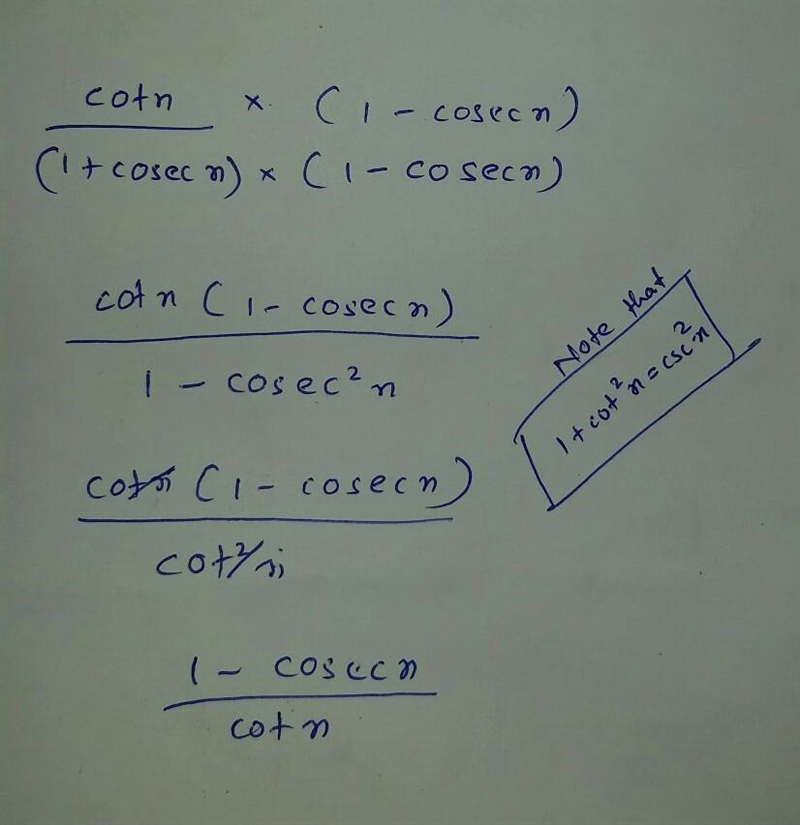 cotn × (1 - cosecn)
(1 + cosec n) × (1 - cosecn)
cotn (1 - cosecn)
1 - cosec² n
Note that
1 + cot² n = csc² n
cotn (1 - cosecn)
cot² n
1 - cosecn
cotn